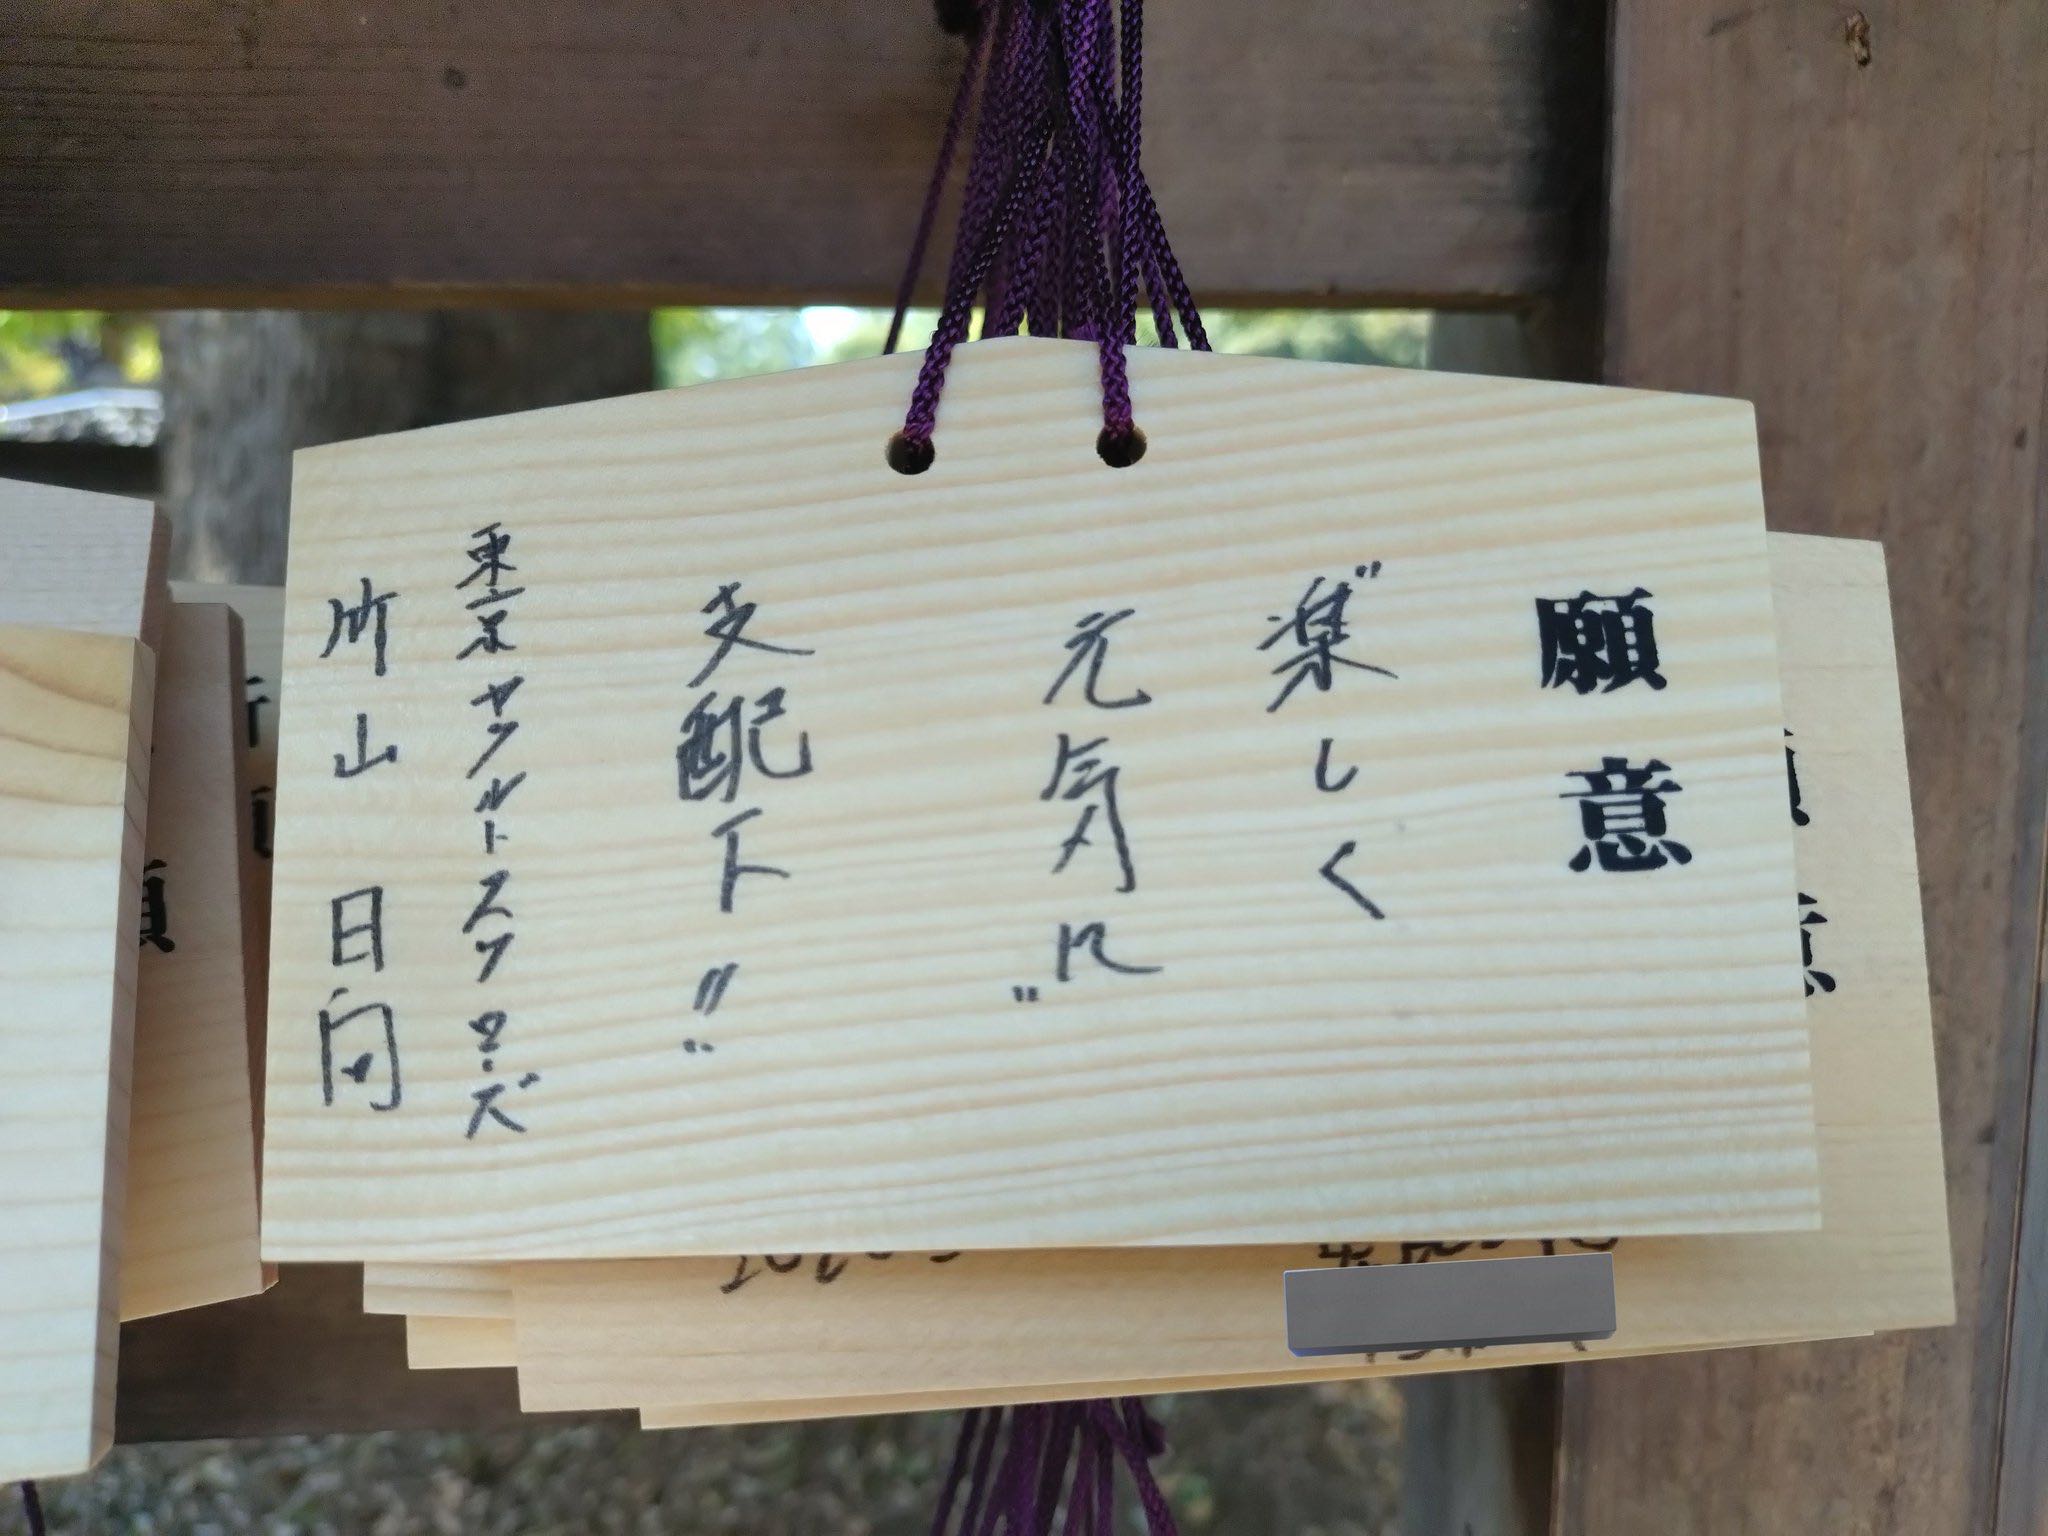 願意
〝楽しく
元気に〟
支配下!!〟
東京ヤクルトスワローズ
竹山 日向